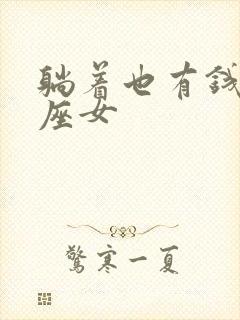 躺着也有钱
座女
驚寒一夏